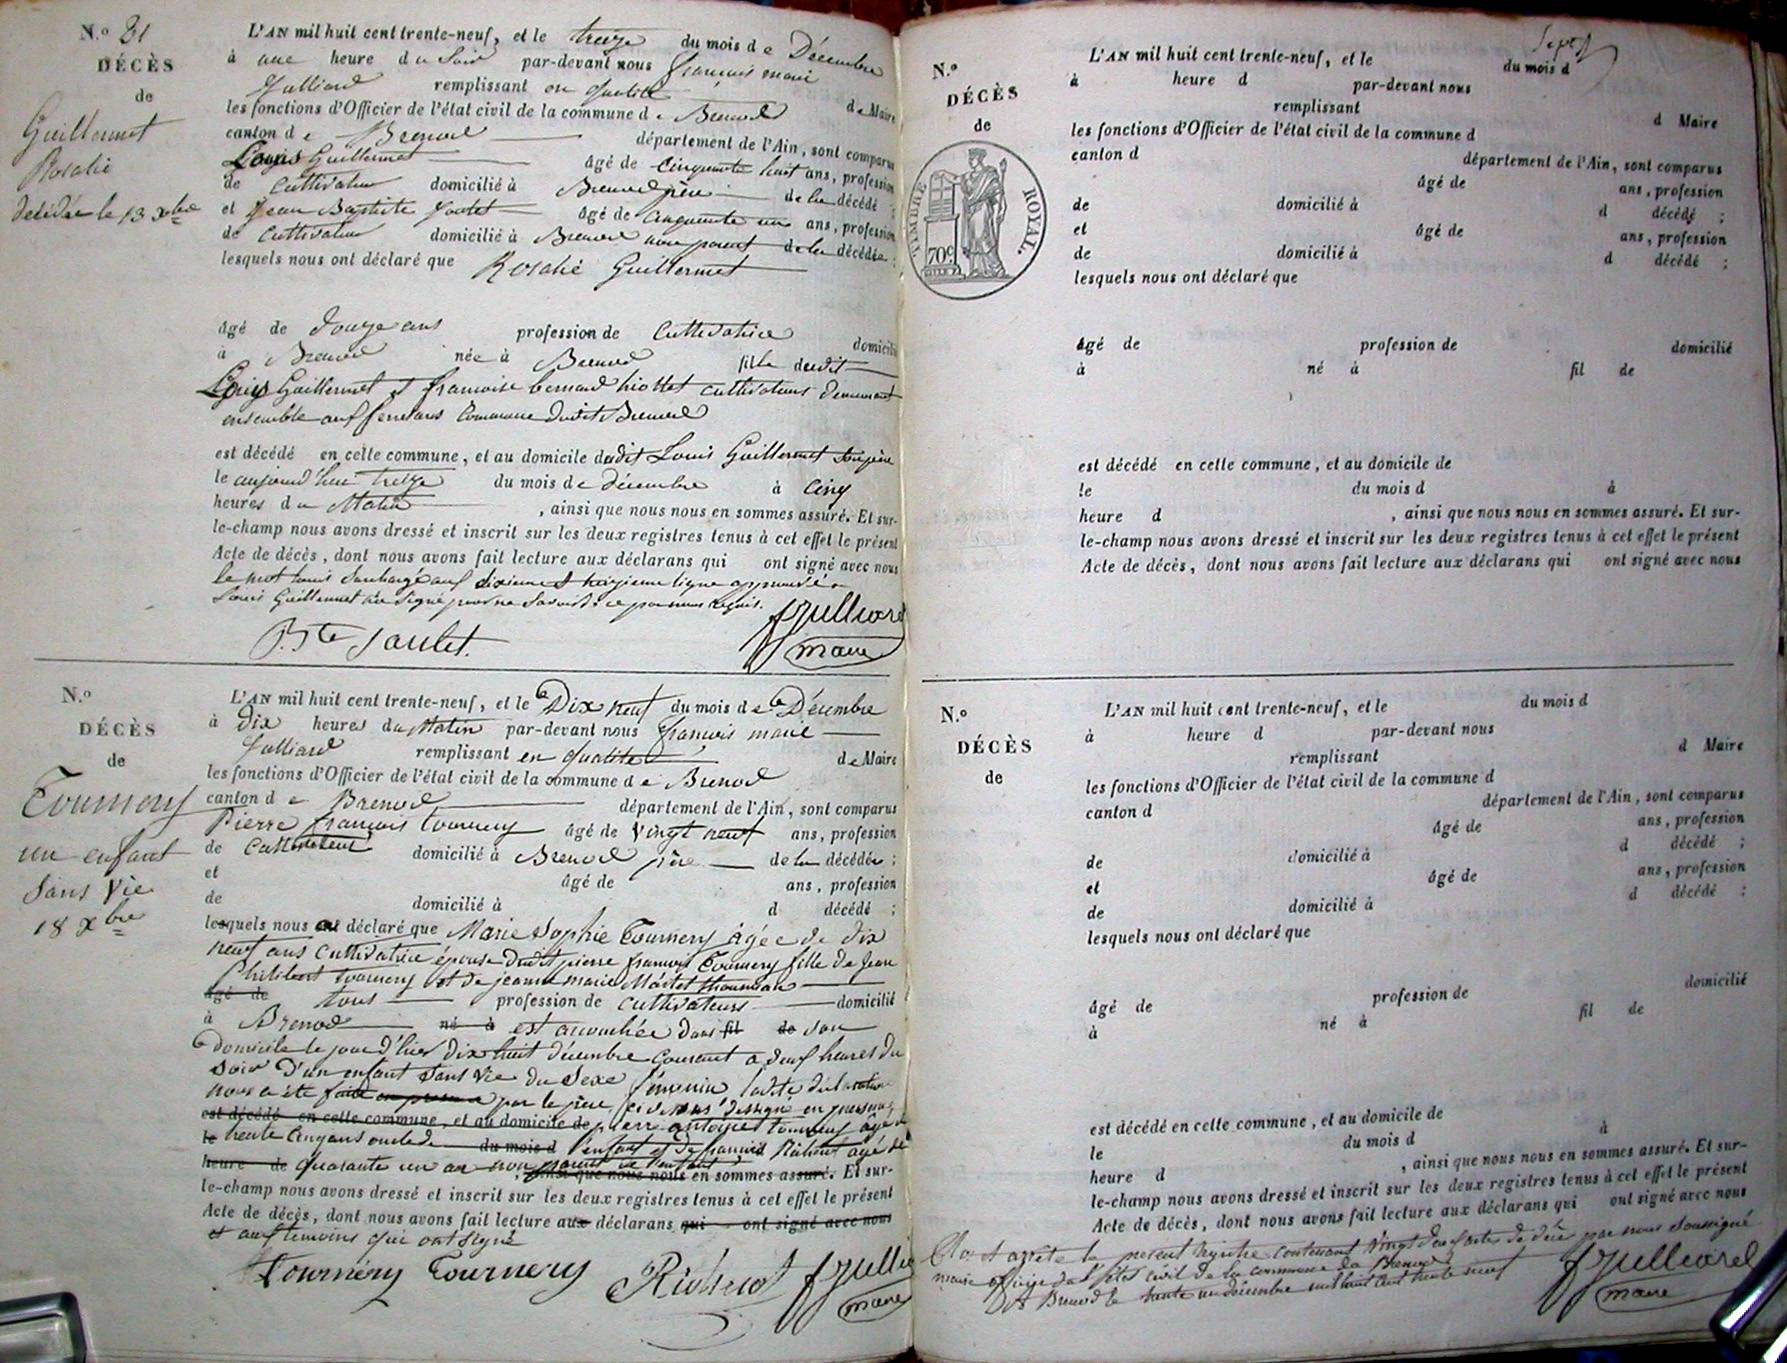 N.o 21
DÉCÈS
de
Guillermet
Rosalie
décédée le 13 xbre
L'AN mil huit cent trente-neuf, et le treize du mois de Décembre
à une heure du Soir par-devant nous françois marie
Julliard remplissant en qualité de Maire
les fonctions d'Officier de l'état civil de la commune de Brenod
canton de Brenod département de l'Ain, sont comparus
Louis Guillermet âgé de cinquante huit ans, profession
de cultivateur domicilié à Brenod père de la décédé ;
et Jean Baptiste Joulet âgé de cinquante un ans, profession
de cultivateur domicilié à Brenod non parent de la décédée ;
lesquels nous ont déclaré que Rosalie Guillermet
âgé de douze ans profession de cultivatrice domicilié
à Brenod née à Brenod fille dudit
Louis Guillermet et françoise bernard cultivateurs demeurant
ensemble aux commune dudit Brenod
est décédé en cette commune, et au domicile dudit Louis Guillermet
le aujourd'hui treize du mois de décembre à cinq
heures du Matin , ainsi que nous nous en sommes assuré. Et sur-
le-champ nous avons dressé et inscrit sur les deux registres tenus à cet effet le présent
Acte de décès, dont nous avons fait lecture aux déclarans qui ont signé avec nous
le mot louis surchargé aux dixième et ligne approuvé
Louis Guillermet n'a signé pour ne savoir de ce par nous requis.
B.te Joulet. fJulliard
maire
N.o
DÉCÈS
de
Tournery
un enfant
Sans Vie
18 xbre
L'AN mil huit cent trente-neuf, et le Dix neuf du mois de Décembre
à dix heures du Matin par-devant nous françois marie
Julliard remplissant en qualité de Maire
les fonctions d'Officier de l'état civil de la commune de Brenod
canton de Brenod département de l'Ain, sont comparus
Pierre françois tournery âgé de vingt neuf ans, profession
de cultivateur domicilié à Brenod père de la décédée ;
et âgé de ans, profession
de domicilié à d décédé ;
lesquels nous a déclaré que Marie Sophie Tournery âgée de dix
neuf ans cultivatrice épouse dudit pierre françois Tournery fille de Jean
Philibert tournery et de jeanne marie
âgé de tous profession de cultivateurs domicilié
à Brenod né à est accouchée dans fil de son
domicile le jour d'hier dix huit décembre courant à deux heures du
soir d'un enfant sans vie du sexe féminin ladite déclaration
nous a été faite par le père ci dessus désigné en présence
est décédé en cette commune, et au domicile de pierre antoine tournery âgé de
le trente cinq ans oncle de du mois d l'enfant et de françois âgé de
heure de quarante un an non parent de l'enfant , ainsi que nous nous en sommes assuré. Et sur-
le-champ nous avons dressé et inscrit sur les deux registres tenus à cet effet le présent
Acte de décès, dont nous avons fait lecture aux déclarans qui ont signé avec nous
et aux témoins qui ont signé
Tournery Tournery fJulliard
maire
Sept
N.o
DÉCÈS
de
TIMBRE ROYAL.
70c
L'AN mil huit cent trente-neuf, et le du mois d
à heure d par-devant nous
remplissant d Maire
les fonctions d'Officier de l'état civil de la commune d
canton d département de l'Ain, sont comparus
âgé de ans, profession
de domicilié à d décédé ;
et âgé de ans, profession
de domicilié à d décédé ;
lesquels nous ont déclaré que
âgé de profession de domicilié
à né à fil de
est décédé en cette commune, et au domicile de
le du mois d à
heure d , ainsi que nous nous en sommes assuré. Et sur-
le-champ nous avons dressé et inscrit sur les deux registres tenus à cet effet le présent
Acte de décès, dont nous avons fait lecture aux déclarans qui ont signé avec nous
N.o
DÉCÈS
de
L'AN mil huit cent trente-neuf, et le du mois d
à heure d par-devant nous
remplissant d Maire
les fonctions d'Officier de l'état civil de la commune d
canton d département de l'Ain, sont comparus
âgé de ans, profession
de domicilié à d décédé ;
et âgé de ans, profession
de domicilié à d décédé ;
lesquels nous ont déclaré que
âgé de profession de domicilié
à né à fil de
est décédé en cette commune, et au domicile de
le du mois d à
heure d , ainsi que nous nous en sommes assuré. Et sur-
le-champ nous avons dressé et inscrit sur les deux registres tenus à cet effet le présent
Acte de décès, dont nous avons fait lecture aux déclarans qui ont signé avec nous
Clos et arrêté le présent registre contenant vingt deux actes de décès par nous soussigné
maire officier de l'état civil de la commune de Brenod
A Brenod le trente un décembre mil huit cent trente neuf
fJulliard
maire